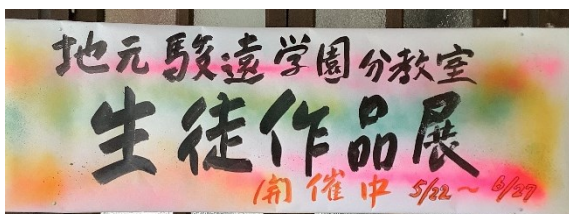 地元駿遠学園分教室
生徒作品展
開催中 5/22～6/27